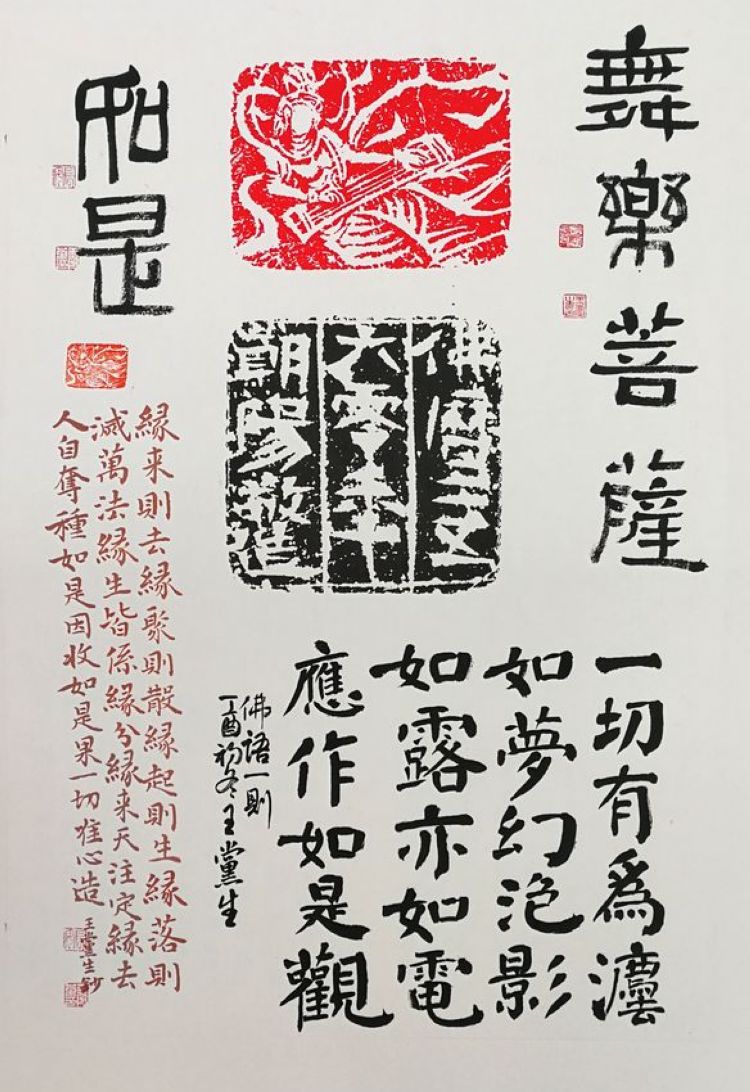 舞樂菩薩
佛曆二五
六零年
朝陽敬造
一切有爲灋
如夢幻泡影
如露亦如電
應作如是觀
佛語一則
丁酉初冬王黨生
如是
縁来則去縁聚則散縁起則生縁落則
滅萬法縁生皆係縁分縁来天注定縁去
人自奪種如是因收如是果一切唯心造
王黨生鈔